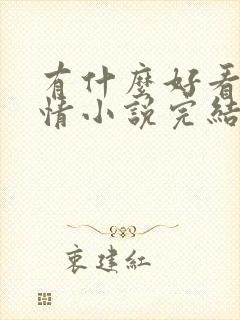 有什麼好看
情小說完結
衷建紅